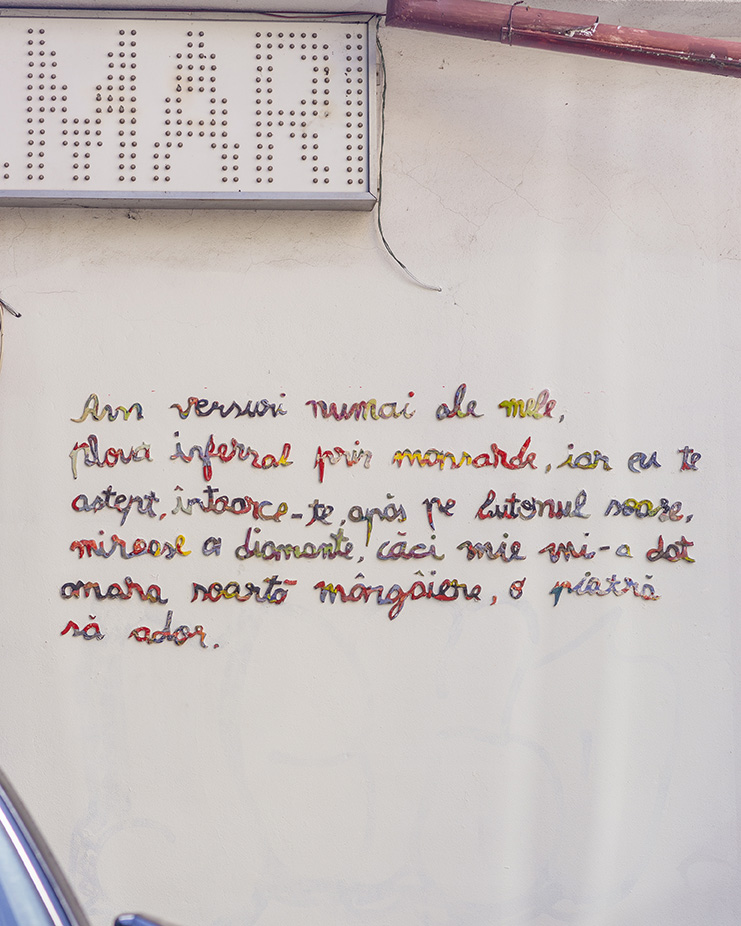 .MAR
Am versuri numai ale mele,
ploua infernal prin mansarde, iar eu te
astept, întoarce-te, apăs pe butonul soare,
miroase a diamante, căci mie mi-a dat
amara soartă mângâiere, o piatră
să ador.